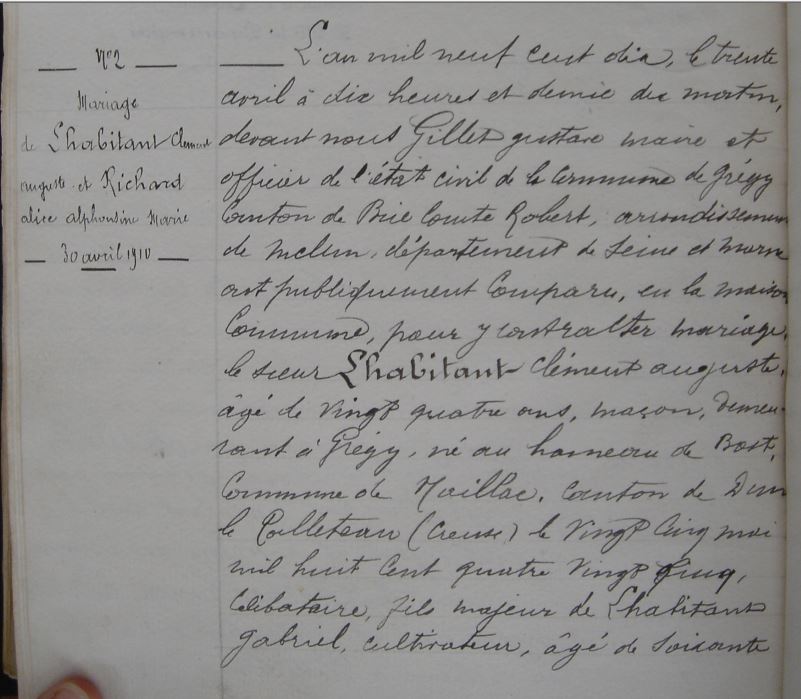 N° 2
Mariage
de Lhabitant Clément
auguste et Richard
alice alphonsine Marie
30 avril 1910
L'an mil neuf cent dix, le trente
avril à dix heures et demie du matin,
devant nous Gillet gustave maire et
officier de l'état civil de la Commune de Grégy
Canton de Brie Comte Robert, arrondissement
de melun, département de Seine et marne
ont publiquement Comparu, en la maison
Commune, pour y contracter mariage,
le sieur Lhabitant Clément auguste,
âgé de vingt quatre ans, maçon, demeu-
rant à Grégy, né au hameau de Bost,
Commune de Naillac, Canton de Dun
le Palleteau (Creuse) le vingt Cinq mai
mil huit Cent quatre vingt Cinq,
Célibataire, fils majeur de Lhabitant
gabriel, cultivateur, âgé de soixante